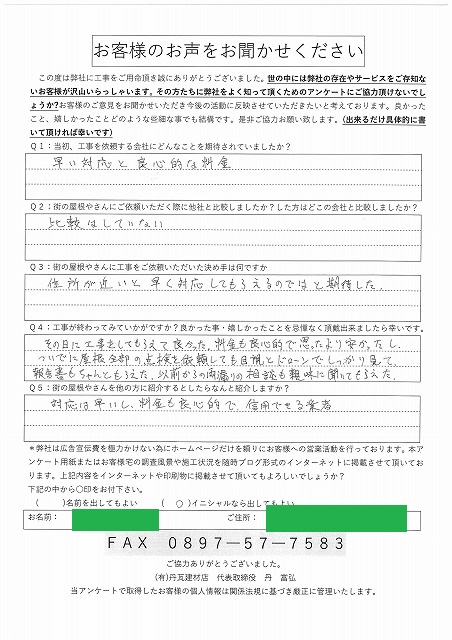 お客様のお声をお聞かせください
この度は弊社に工事をご用命頂き誠にありがとうございました。世の中には弊社の存在やサービスをご存知ない
お客様が沢山いらっしゃいます。その方たちに弊社をよく知って頂くためのアンケートにご協力頂けないでし
ょうか?お客様のご意見をお聞かせいただき今後の活動に反映させていただきたいと考えております。良かった
こと、嬉しかったことどのような些細な事でも結構です。是非ご協力お願い致します。(出来るだけ具体的に書
いて頂ければ幸いです)
Q1:当初、工事を依頼する会社にどんなことを期待されていましたか?
早い対応と良心的な料金
Q2:街の屋根やさんにご依頼いただく際に他社と比較しましたか?した方はどこの会社と比較しましたか?
比較はしていない
Q3:街の屋根やさんに工事をご依頼いただいた決め手は何ですか
住所が近いと早く対応してもらえるのではと期待した。
Q4:工事が終わってみていかがですか?良かった事・嬉しかったことを忌憚なく頂戴出来ましたら幸いです。
その日に工事をしてもらえて良かった。料金も良心的で思ったより安かったし、
ついでに屋根全部の点検を依頼しても目視とドローンでしっかり見て、
報告書もちゃんともらえた。以前からの雨漏りの相談も親味に聞いてもらえた。
Q5:街の屋根やさんを他の方に紹介するとしたらなんと紹介しますか?
対応は早いし、料金も良心的で、信用できる業者
＊弊社は広告宣伝費を極力かけない為にホームページだけを頼りにお客様への営業活動を行っております。本ア
ンケート用紙またはお客様宅の調査風景や施工状況を随時ブログ形式のインターネットに掲載させて頂いてお
ります。上記内容をインターネットや印刷物に掲載させて頂いてもよろしいでしょうか?
下記の中から〇印をお付下さい。
( )名前を出してもよい ( ○ )イニシャルなら出してもよい
お名前: ご住所:
FAX 0897-57-7583
ご協力ありがとうございました。
(有)丹瓦建材店 代表取締役 丹 富弘
当アンケートで取得したお客様の個人情報は関係法規に基づき厳正に管理いたします。